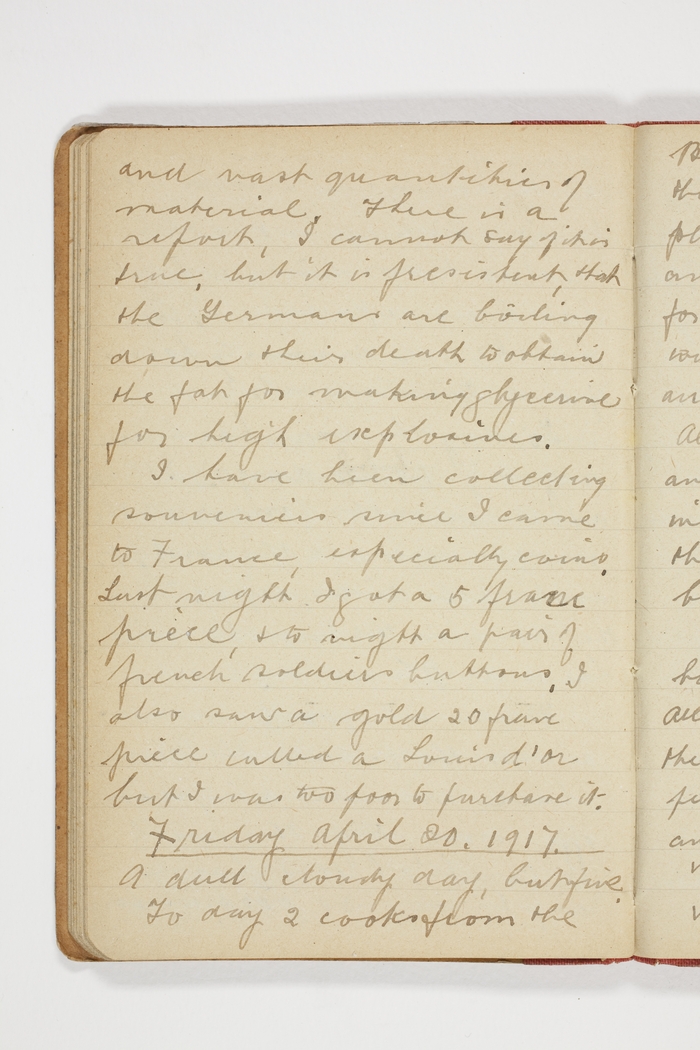 and vast quantities of
material. There is a
report, I cannot say if it is
true, but it is presistent, that
the Germans are boiling
down their death to obtain
the fat for making glycerine
for high explosives.
I have been collecting
souveniers since I came
to France, especially coins.
Last night I got a 5 franc
piece, & to night a pair of
french soldiers buttons, I
also saw a gold 20 franc
piece called a Louis d'or
but I was too poor to purchase it.
Friday April 20. 1917.
A dull cloudy day, but fine.
To day 2 cooks from the